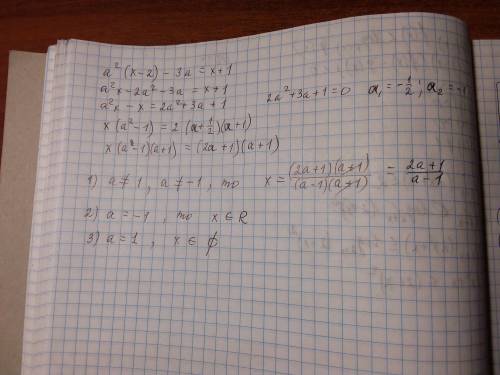 a²(x-2) - 3a = x+1
a²x - 2a² - 3a = x+1
a²x - x = 2a² + 3a + 1
2a² + 3a + 1 = 0   a₁ = -1/2 ; a₂ = -1
x(a² - 1) = 2(a + 1/2)(a+1)
x(a² - 1)(a+1) = (2a+1)(a+1)
1) a ≠ 1, a ≠ -1, то x = (2a+1)(a+1)/(a-1)(a+1) = 2a+1/a-1
2) a = -1, то x ∈ R
3) a = 1, x ∈ ∅